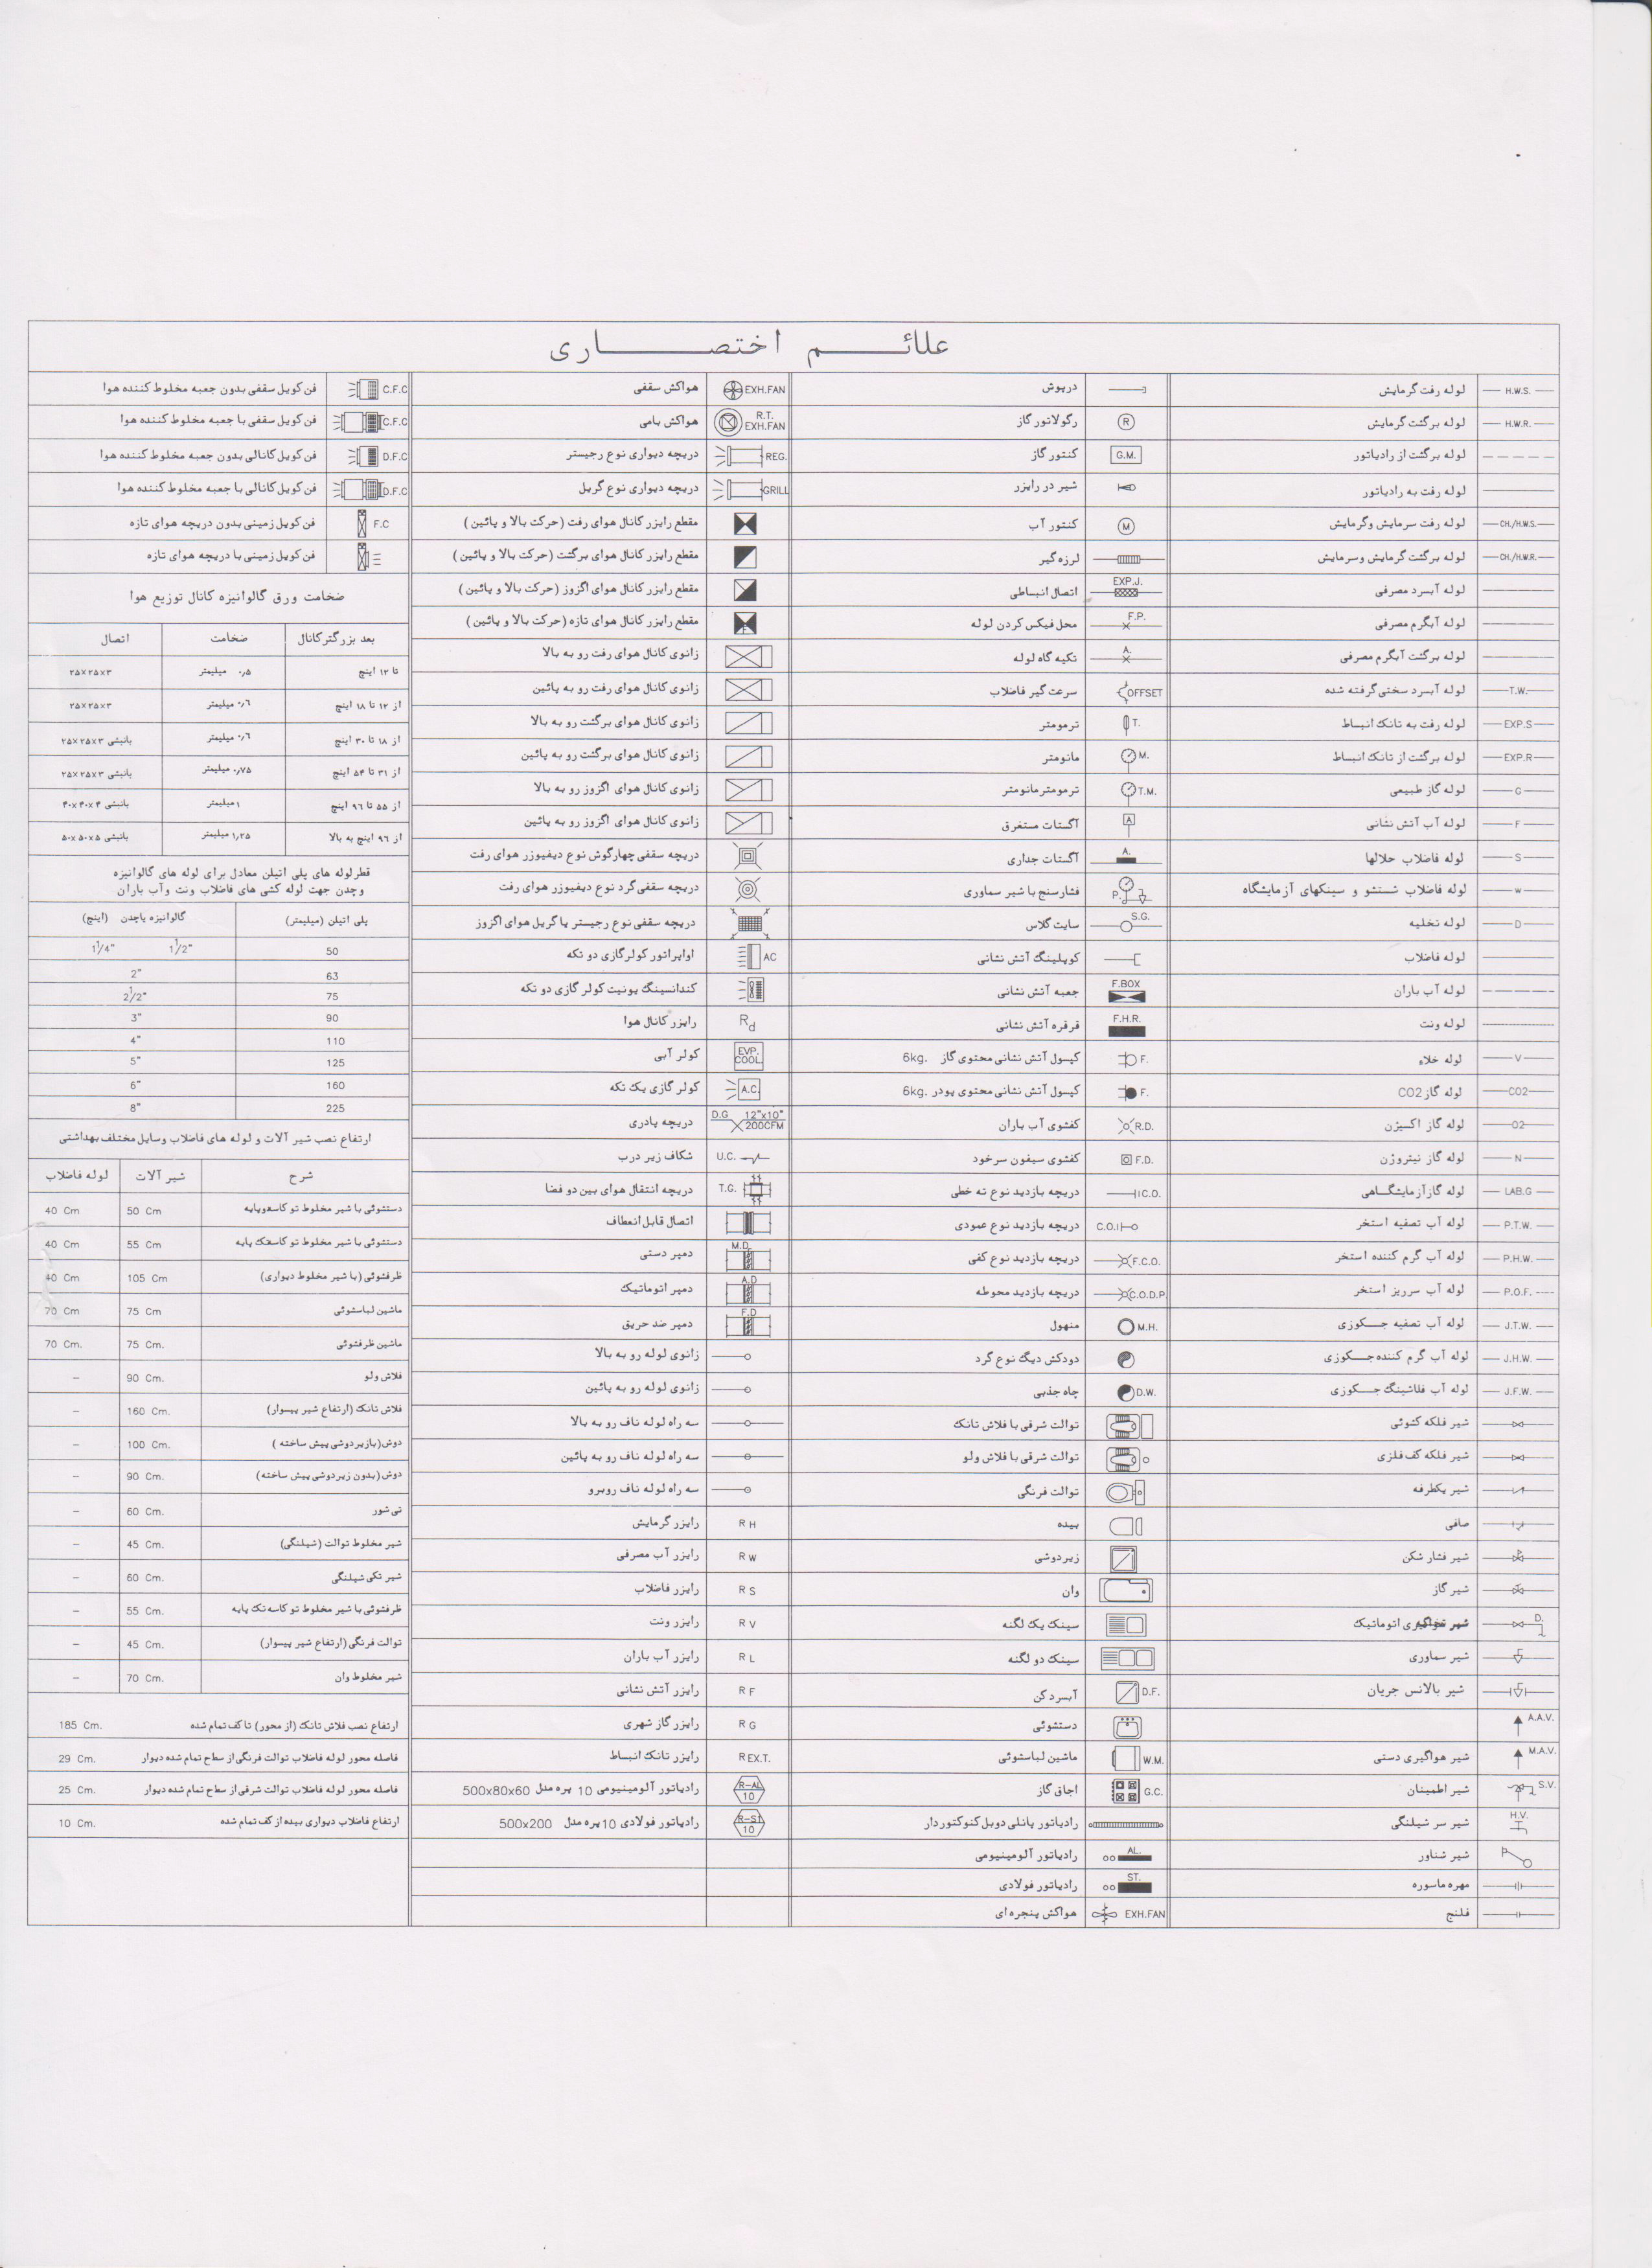 علائم اختصاری
لوله رفت گرمایش H.W.S.
لوله برگشت گرمایش H.W.R.
لوله برگشت از رادیاتور
لوله رفت به رادیاتور
لوله رفت سرمایش وگرمایش CH./H.W.S.
لوله برگشت گرمایش وسرمایش CH./H.W.R.
لوله آبسرد مصرفی
لوله آبگرم مصرفی
لوله برگشت آبگرم مصرفی
لوله آبسرد سختی گرفته شده T.W.
لوله رفت به تانک انبساط EXP.S
لوله برگشت از تانک انبساط EXP.R
لوله گاز طبیعی G
لوله آب آتش نشانی F
لوله فاضلاب حلالها S
لوله فاضلاب شستشو و سینکهای آزمایشگاه W
لوله تخلیه D
لوله فاضلاب
لوله آب باران
لوله ونت
لوله خلاء V
لوله گاز CO2 CO2
لوله گاز اکسیژن O2
لوله گاز نیتروژن N
لوله گاز آزمایشگاهی LAB.G
لوله آب تصفیه استخر P.T.W.
لوله آب گرم کننده استخر P.H.W.
لوله آب سرریز استخر P.O.F.
لوله آب تصفیه جکوزی J.T.W.
لوله آب گرم کننده جکوزی J.H.W.
لوله آب فلاشینگ جکوزی J.F.W.
شیر فلکه کشوئی
شیر فلکه کف فلزی
شیر یکطرفه
صافی
شیر فشار شکن
شیر گاز
شیر اتوماتیک D.
شیر سماوری
شیر بالانس جریان
A.A.V.
شیر هواگیری دستی M.A.V.
شیر اطمینان S.V.
شیر سر شیلنگی H.V.
شیر شناور
مهره ماسوره
فلنج
درپوش
رگولاتور گاز R
کنتور گاز G.M.
شیر در رایزر
کنتور آب M
لرزه گیر
اتصال انبساطی EXP.J.
محل فیکس کردن لوله F.P.
تکیه گاه لوله A.
سرعت گیر فاضلاب OFFSET
ترمومتر T.
مانومتر M.
ترمومترمانومتر T.M.
آگستات مستغرق A
آگستات جداری A.
فشارسنج با شیر سماوری P.
سایت گلاس S.G.
کوپلینگ آتش نشانی
جعبه آتش نشانی F.BOX
قرقره آتش نشانی F.H.R.
کپسول آتش نشانی محتوی گاز 6kg. F.
کپسول آتش نشانی محتوی پودر 6kg. F.
کفشوی آب باران R.D.
کفشوی سیفون سرخود F.D.
دریچه بازدید نوع ته خطی C.O.
دریچه بازدید نوع عمودی C.O.
دریچه بازدید نوع کفی F.C.O.
دریچه بازدید محوطه C.O.D.P
منهول M.H.
دودکش دیگ نوع گرد
چاه جذبی D.W.
توالت شرقی با فلاش تانک
توالت شرقی با فلاش ولو
توالت فرنگی
بیده
زیردوشی
وان
سینک یک لگنه
سینک دو لگنه
آبسردکن D.F.
دستشوئی
ماشین لباسشوئی W.M.
اجاق گاز G.C.
رادیاتور پانلی دوبل کنوکتوردار
رادیاتور آلومینیومی AL.
رادیاتور فولادی ST.
هواکش پنجره ای EXH.FAN
هواکش سقفی EXH.FAN
هواکش بامی R.T. EXH.FAN
دریچه دیواری نوع رجیستر REG.
دریچه دیواری نوع گریل GRILL
مقطع رایزر کانال هوای رفت (حرکت بالا و پائین)
مقطع رایزر کانال هوای برگشت (حرکت بالا و پائین)
مقطع رایزر کانال هوای اگزوز (حرکت بالا و پائین)
مقطع رایزر کانال هوای تازه (حرکت بالا و پائین) F
زانوی کانال هوای رفت رو به بالا
زانوی کانال هوای رفت رو به پائین
زانوی کانال هوای برگشت رو به بالا
زانوی کانال هوای برگشت رو به پائین
زانوی کانال هوای اگزوز رو به بالا
زانوی کانال هوای اگزوز رو به پائین
دریچه سقفی چهارگوش نوع دیفیوزر هوای رفت
دریچه سقفی گرد نوع دیفیوزر هوای رفت
دریچه سقفی نوع رجیستر یا گریل هوای اگزوز
اواپراتور کولرگازی دو تکه AC
کندانسینگ یونیت کولر گازی دو تکه
رایزر کانال هوا Rd
کولر آبی EVP. COOL.
کولر گازی یک تکه A.C.
دریچه پادری D.G 12"x10" 200CFM
شکاف زیر درب U.C.
دریچه انتقال هوای بین دو فضا T.G.
اتصال قابل انعطاف
دمپر دستی M.D.
دمپر اتوماتیک A.D
دمپر ضد حریق F.D
زانوی لوله رو به بالا
زانوی لوله رو به پائین
سه راه لوله ناف رو به بالا
سه راه لوله ناف رو به پائین
سه راه لوله ناف روبرو
رایزر گرمایش R H
رایزر آب مصرفی R W
رایزر فاضلاب R S
رایزر ونت R V
رایزر آب باران R L
رایزر آتش نشانی R F
رایزر گاز شهری R G
رایزر تانک انبساط R EX.T.
رادیاتور آلومینیومی 10 پره مدل 500x80x60 R-AL 10
رادیاتور فولادی 10 پره مدل 500x200 R-ST 10
فن کویل سقفی بدون جعبه مخلوط کننده هوا C.F.C
فن کویل سقفی با جعبه مخلوط کننده هوا C.F.C
فن کویل کانالی بدون جعبه مخلوط کننده هوا D.F.C
فن کویل کانالی با جعبه مخلوط کننده هوا D.F.C
فن کویل زمینی بدون دریچه هوای تازه F.C
فن کویل زمینی با دریچه هوای تازه
ضخامت ورق گالوانیزه کانال توزیع هوا
بعد بزرگتر کانال ضخامت اتصال
تا ۱۲ اینچ ۰٫۵ میلیمتر ۲۵x۲۵x۳
از ۱۲ تا ۱۸ اینچ ۰٫۶ میلیمتر ۲۵x۲۵x۳
از ۱۸ تا ۳۰ اینچ ۰٫۶ میلیمتر بانبشی ۲۵x۲۵x۳
از ۳۱ تا ۵۴ اینچ ۰٫۷۵ میلیمتر بانبشی ۲۵x۲۵x۳
از ۵۵ تا ۹۶ اینچ ۱ میلیمتر بانبشی ۴۰x۴۰x۴
از ۹۶ اینچ به بالا ۱٫۲۵ میلیمتر بانبشی ۵۰x۵۰x۵
قطرلوله های پلی اتیلن معادل برای لوله های گالوانیزه
وچدن جهت لوله کشی های فاضلاب ونت وآب باران
پلی اتیلن (میلیمتر) گالوانیزه یاچدن (اینچ)
50 1 1/4" 1 1/2"
63 2"
75 2 1/2"
90 3"
110 4"
125 5"
160 6"
225 8"
ارتفاع نصب شیر آلات و لوله های فاضلاب وسایل مختلف بهداشتی
شرح شیر آلات لوله فاضلاب
دستشوئی با شیر مخلوط تو کاسه وپایه 50 Cm 40 Cm
دستشوئی با شیر مخلوط تو پایه 55 Cm 40 Cm
ظرفشوئی (با شیر مخلوط دیواری) 105 Cm 40 Cm
ماشین لباسشوئی 75 Cm 70 Cm
ماشین ظرفشوئی 75 Cm. 70 Cm.
فلاش ولو 90 Cm. –
فلاش تانک (ارتفاع شیر پیسوار) 160 Cm. –
دوش(بازیردوشی پیش ساخته) 100 Cm. –
دوش(بدون زیردوشی پیش ساخته) 90 Cm. –
تی شور 60 Cm. –
شیر مخلوط توالت (شیلنگی) 45 Cm. –
شیر تکی شیلنگی 60 Cm. –
ظرفشوئی با شیر مخلوط تو کاسه تک پایه 55 Cm. –
توالت فرنگی (ارتفاع شیر پیسوار) 45 Cm. –
شیر مخلوط وان 70 Cm. –
ارتفاع نصب فلاش تانک (از محور) تا کف تمام شده 185 Cm.
فاصله محور لوله فاضلاب توالت فرنگی از سطح تمام شده دیوار 29 Cm.
فاصله محور لوله فاضلاب توالت شرقی از سطح تمام شده دیوار 25 Cm.
ارتفاع فاضلاب دیواری بیده از کف تمام شده 10 Cm.